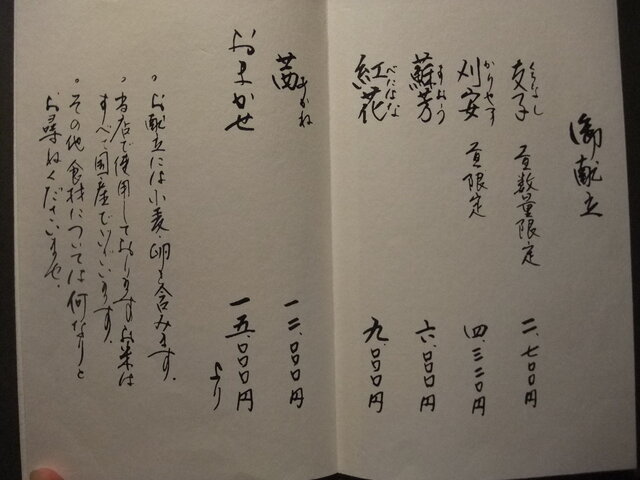 御献立
支子 くちなし 昼数量限定 二、七〇〇円
刈安 かりやす 昼限定 四、三二〇円
蘇芳 すおう 六、〇〇〇円
紅花 べにばな 九、〇〇〇円
茜 あかね 一二、〇〇〇円
おまかせ 一五、〇〇〇円より
・お献立には小麦・卵を含みます。
・当店で使用しておりますお米は
すべて国産でございます。
・その他食材については何なりと
お尋ねくださいませ。